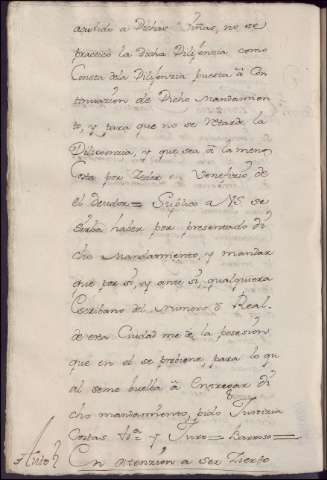 acudido a Dichas Viñas, no se
practicó la Dicha Dilijenzia como
Consta dela Dilijenzia puesta â Con
tinuazion de Dicho mandamien
to, y para que no se retarde la
Dilixencia, y que sea â la menos
Costa por Zeder en Venefizio de
el Deudor = Suplico a Vs. se
sirba haber por presentado di
cho Mandamiento, y mandar
que por si, y ante si qualquiera
Escribano del Numero ô Real
de esta Ciudad me de la posesion
que en el se prebiene, para lo qu
al seme buelba â Entregar di
cho mandamiento, pido Justizia
Costas Vt.ª y Juro = Barroso =
Auto
En atenzion a ser Zierto